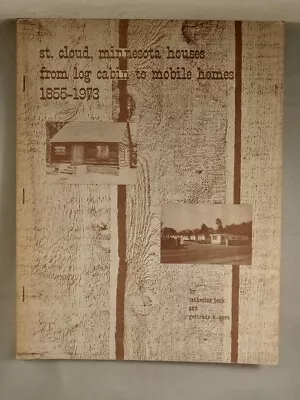 st. cloud, minnesota houses
from log cabin to mobile homes
1855-1973
by
catherine beck
and
gertrude b. gove